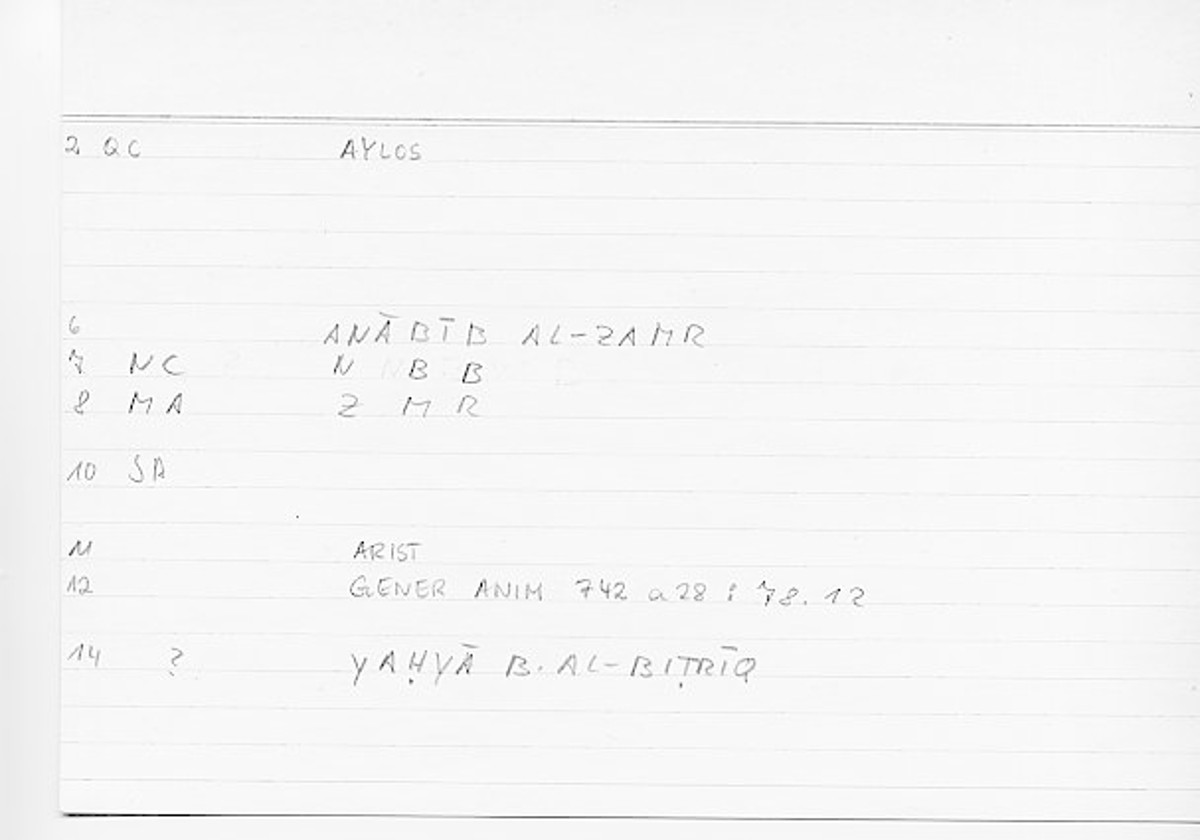 2 QC AYLOS
6 ANĀBĪB AL-ZAMR
7 NC N B B
8 MA Z M R
10 SA
11 ARIST
12 GENER ANIM 742 a 28 : 78.12
14 ? YAḤYĀ B. AL-BIṬRĪQ